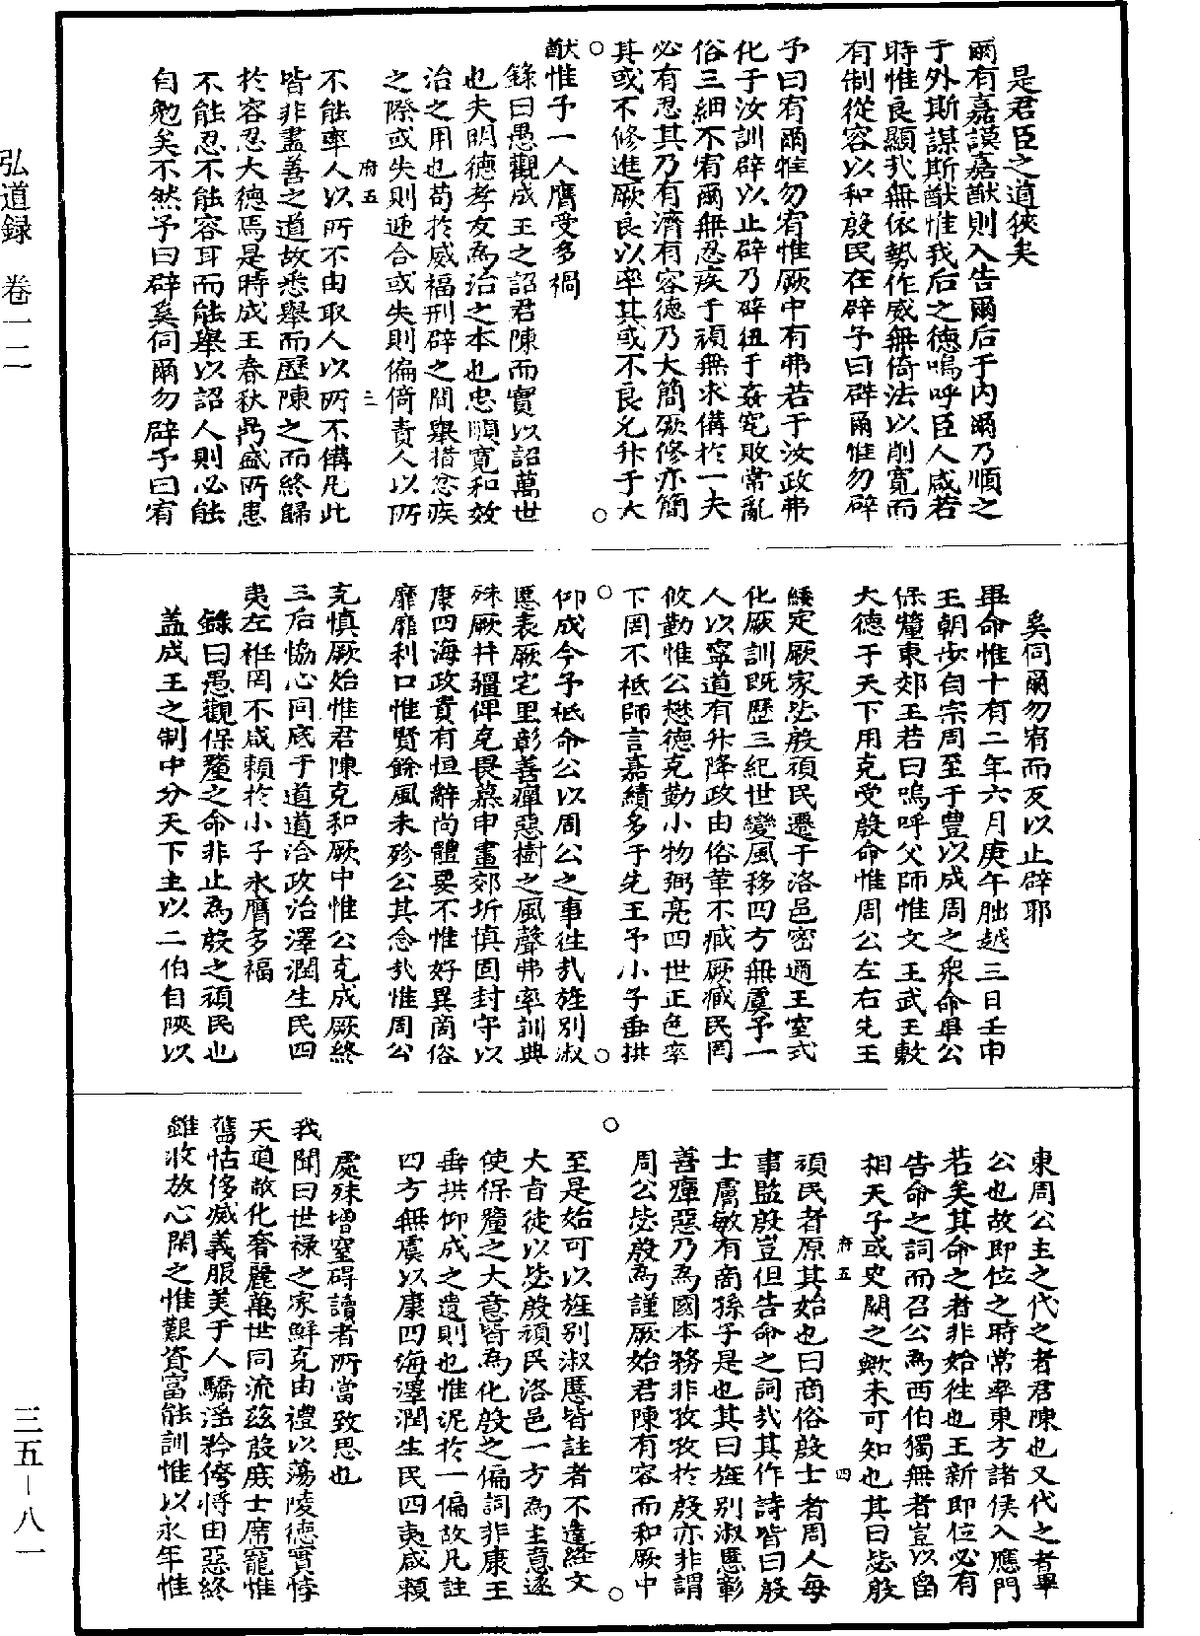 是君臣之道狹夫
爾有嘉謨嘉猷則入告爾后于內爾乃順之
于外斯謀斯猷惟我后之德嗚呼臣人咸若
時惟良顯哉無依勢作威無倚法以削寬而
有制從容以和殷民在辟予曰辟爾惟勿辟
予曰宥爾惟勿宥惟厥中有弗若于汝政弗
化于汝訓辟以止辟乃辟狃于姦宄敗常亂
俗三細不宥爾無忿疾于頑無求備於一夫
必有忍其乃有濟有容德乃大簡厥修亦簡
其或不修進厥良以率其或不良允升于大
猷惟予一人膺受多福
錄曰愚觀成王之詔君陳而實以詔萬世
也夫明德孝友為治之本也忠順寬和效
治之用也苟於威福刑辟之間舉措忿疾
之際或失則迎合或失則偏倚責人以所
府五
三
不能率人以所不由取人以所不備凡此
皆非盡善之道故悉舉而歷陳之而終歸
於容忍大德焉是時成王春秋鼎盛所患
不能忍不能容耳而能舉以詔人則必能
自勉矣不然予曰辟奚伺爾勿辟予曰宥
奚伺爾勿宥而反以止辟耶
畢命惟十有二年六月庚午朏越三日壬申
王朝步自宗周至于豐以成周之衆命畢公
保釐東郊王若曰嗚呼父師惟文王武王敷
大德于天下用克受殷命惟周公左右先王
綏定厥家毖殷頑民遷于洛邑密邇王室式
化厥訓既歷三紀世變風移四方無虞予一
人以寧道有升降政由俗革不臧厥臧民罔
攸勸惟公懋德克勤小物弼亮四世正色率
下罔不祗師言嘉績多于先王予小子垂拱
仰成今予祗命公以周公之事往哉旌別淑
慝表厥宅里彰善癉惡樹之風聲弗率訓典
殊厥井疆俾克畏慕申畫郊圻慎固封守以
康四海政貴有恒辭尚體要不惟好異商俗
靡靡利口惟賢餘風未殄公其念哉惟周公
克慎厥始惟君陳克和厥中惟公克成厥終
三后協心同底于道道洽政治澤潤生民四
夷左衽罔不咸賴於小子永膺多福
錄曰愚觀保釐之命非止為殷之頑民也
蓋成王之制中分天下主以二伯自陝以
東周公主之代之者君陳也又代之者畢
公也故即位之時常率東方諸侯入應門
若矣其命之者非始往也王新即位必有
告命之詞而召公為西伯獨無者豈以留
相天子或史闕之歟未可知也其曰毖殷
府五
四
頑民者原其始也曰商俗殷士者周人每
事監殷豈但告命之詞哉其作詩皆曰殷
士膚敏有商孫子是也其曰旌別淑慝彰
善癉惡乃為國本務非孜孜於殷亦非謂
周公毖殷為謹厥始君陳有容而和厥中
至是始可以旌別淑慝皆註者不達經文
大旨徒以毖殷頑民洛邑一方為主意遂
使保釐之大意皆為化殷之偏詞非康王
垂拱仰成之遺則也惟泥於一偏故凡註
四方無虞以康四海澤潤生民四夷咸賴
處殊增窒碍讀者所當致思也
我聞曰世祿之家鮮克由禮以蕩陵德實悖
天道敝化奢麗萬世同流茲殷庶士席寵惟
舊怙侈滅義服美于人驕淫矜侉將由惡終
雖收放心閑之惟艱資富能訓惟以永年惟
弘道録　卷一二
三五－八一